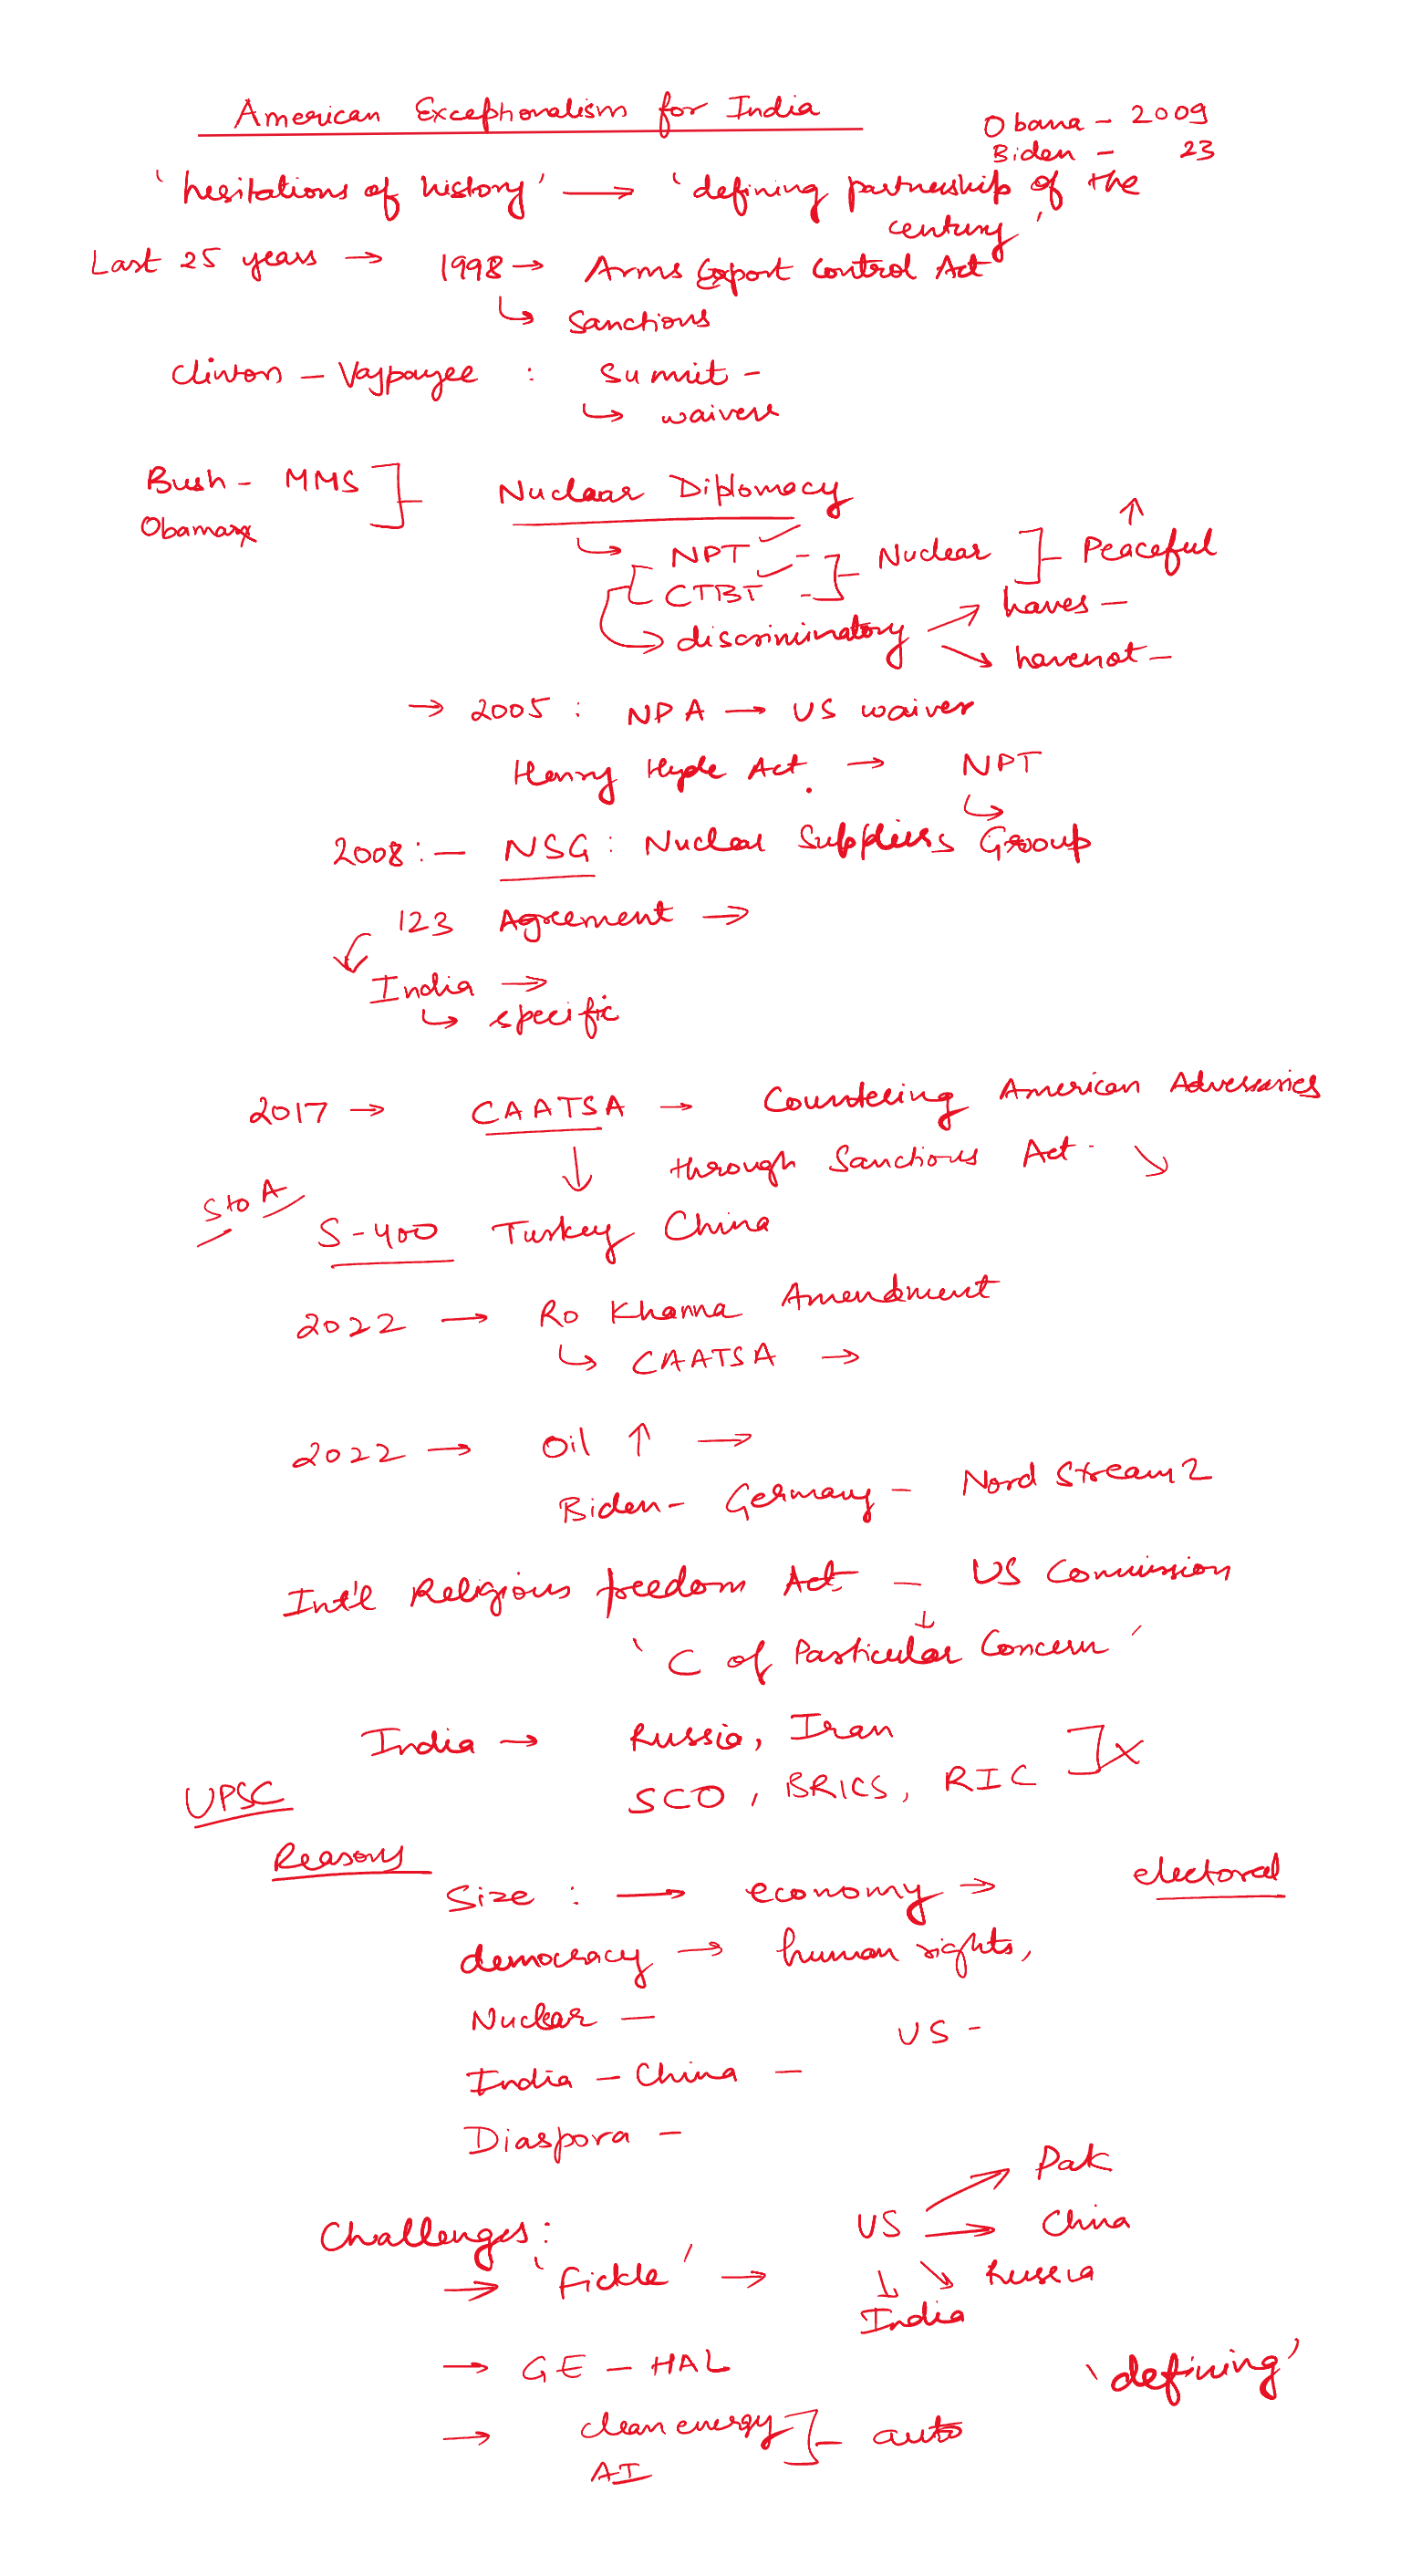 American Exceptionalism for India
Obama - 2009
Biden - 23
'hesitations of history' → 'defining partnership of the
century'
Last 25 years → 1998 → Arms Export Control Act
↳ Sanctions
Clinton - Vajpayee : Summit -
↳ waivers
Bush - MMS
Obama
Nuclear Diplomacy
↳ NPT ✓ -
CTBT ✓ - Nuclear ] - Peaceful ↑
↳ discriminatory → haves -
→ havenot -
→ 2005 : NPA → US waiver
Henry Hyde Act. → NPT
2008 :- NSG : Nuclear Suppliers Group
123 Agreement →
India →
↳ specific
2017 → CAATSA → Countering American Adversaries
↓ through Sanctions Act.
S to A
S-400 Turkey China
2022 → Ro Khanna Amendment
↳ CAATSA →
2022 → Oil ↑ →
Biden - Germany - Nord Stream 2
Int'l Religious freedom Act - US Commission
↓
'C of Particular Concern'
India → Russia, Iran
SCO, BRICS, RIC ] x
UPSC
Reasons
Size : → economy → electoral
democracy → human rights,
Nuclear -
US -
India - China -
Diaspora -
Challenges :
→ 'fickle' → US → Pak
→ China
→ Russia
↓ India
→ GE - HAL
'defining'
→ clean energy ] - auto
AI